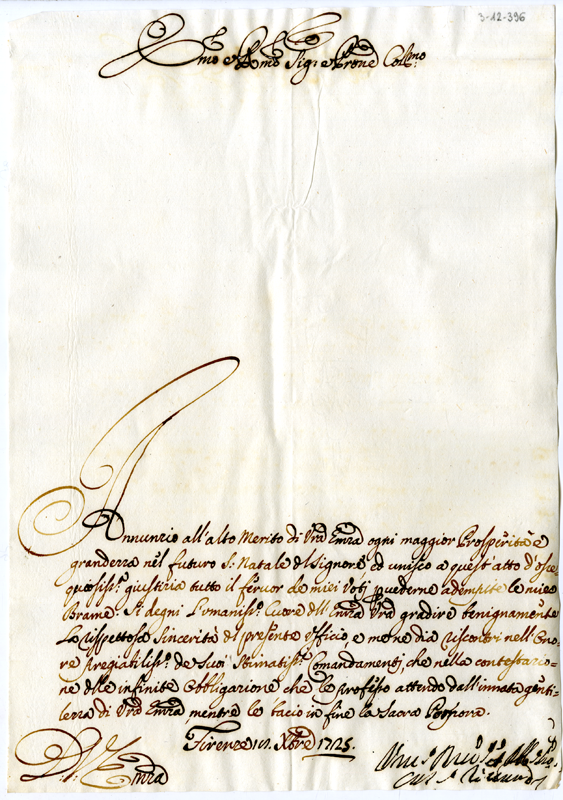 3-12-396
Emo e Rmo Sig: e Prone Colmo:
Annunzio all'alto Merito di Vra Emza ogni maggior Prosperità e
grandezza nel futuro S. Natale del Signore ed unisco a quest'atto d'osse
quosiss.ª giustizia tutto il fervor de miei Voti p vederne adempite le mie
Brame. Si degni l'umaniss.º Cuore dell'Emza Vra gradire benignamente
la rispettosa sincerità del presente Ufficio e me ne dia riscontri nell'Ono-
re pregiabiliss.º de Suoi Stimatiss.i Comandamenti, che nella contestazio-
ne delle infinite Obbligazione che le professo attendo dall'innata genti-
lezza di Vra Emza mentre le bacio in fine la Sacra Porpora.
Firenze Xbre 1725.
D. V. Emza